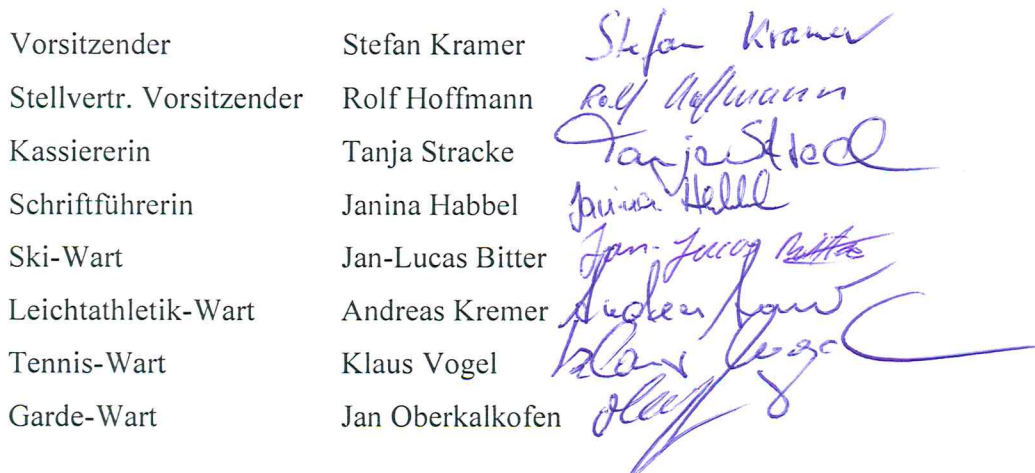 Vorsitzender Stefan Kramer Stefan Kramer
Stellvertr. Vorsitzender Rolf Hoffmann Rolf Hoffmann
Kassiererin Tanja Stracke Tanja
Schriftführerin Janina Habbel Janina Habbel
Ski-Wart Jan-Lucas Bitter Jan-Lucas Bitter
Leichtathletik-Wart Andreas Kremer Andreas
Tennis-Wart Klaus Vogel Klaus Vogel
Garde-Wart Jan Oberkalkofen